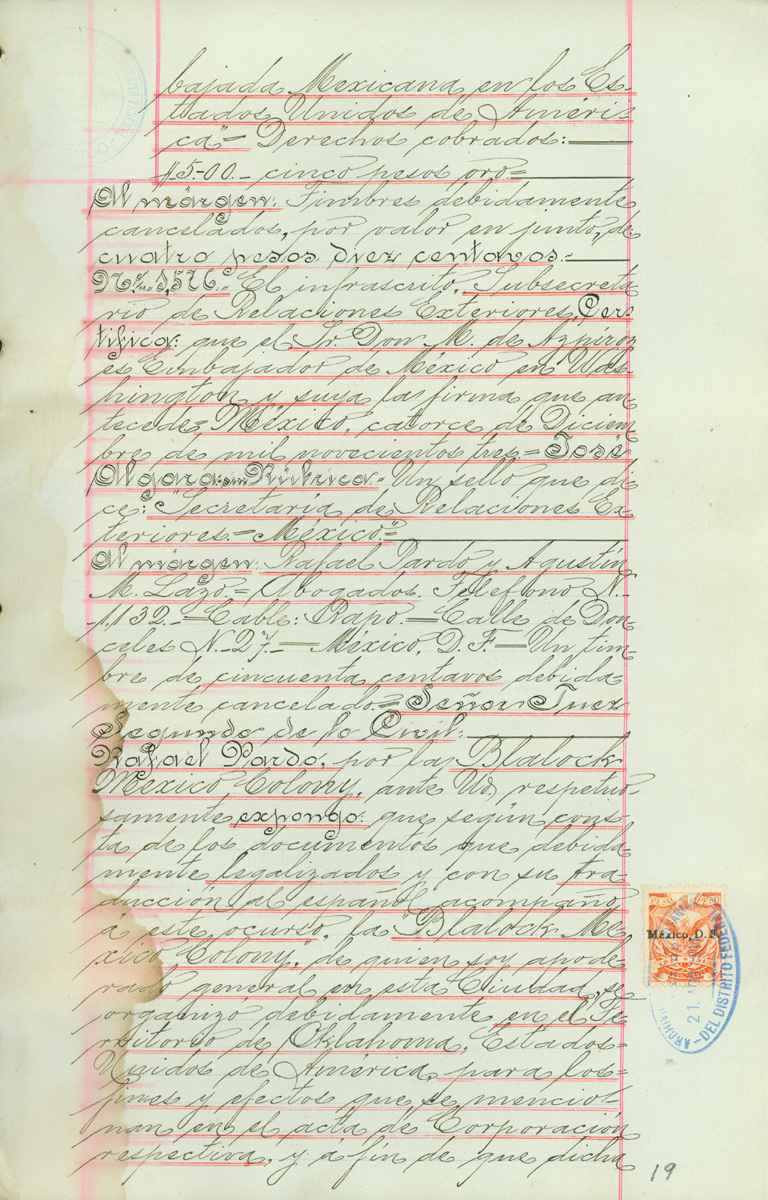 bajada Mexicana en los Es-
tados Unidos de Améri-
ca"= Derechos cobrados:
$5.00.- cinco pesos oro.=
Al márgen: Timbres debidamente
cancelados, por valor en junto, de
cuatro pesos diez centavos.-
El infrascrito, Subsecreta
rio de Relaciones Exteriores, Cer-
tifica: que el Sr. Don M. de Azpíroz
es Embajador de México en Was-
hington y suya la firma que an
tecede= México, catorce de Diciem
bre de mil novecientos tres= José
Algara.= Rúbrica.= Un sello que di
ce: "Secretaría de Relaciones Ex
teriores.= México."=
Al márgen: Rafael Pardo y Agustín
M. Lazo.= Abogados. Teléfono N.-
1,132.= Cable: Rapo.= Calle de Don
celes N.- 27.= México, D. F.= Un tim-
bre de cincuenta centavos debida
mente cancelado.= Señor Juez
Segundo de lo Civil:
Rafael Pardo, por la "Blalock
Mexico Colony, ante Ud. respetuo-
samente expongo: que según cons-
ta de los documentos que debida
mente legalizados y con su tra-
ducción al español acompaño
á este ocurso, la "Blalock Me-
xico Colony," de quien soy apode-
rado general en esta Ciudad, se
organizó debidamente en el Te-
rritorio de Oklahoma, Estados=
Unidos de América, para los=
fines y efectos que se mencio-
nan en el acta de Corporación
respectiva, y á fin de que dicha
19
México, D. F.
21
DEL DISTRITO FEDERAL